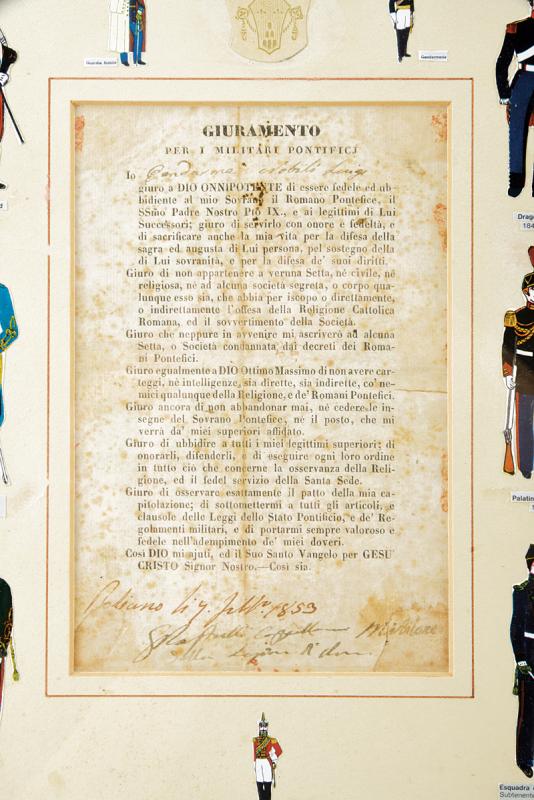 Guardia Nobile
Gendarmeria
GIURAMENTO
PER I MILITARI PONTIFICJ
Io Gendarme Nobili Luigi
giuro a DIO ONNIPOTENTE di essere fedele ed ub-
bidiente al mio Sovrano il Romano Pontefice, il
SSmo Padre Nostro Pio IX., e ai legittimi di Lui
Successori; giuro di servirlo con onore e fedeltà, e
di sacrificare anche la mia vita per la difesa della
sagra ed augusta di Lui persona, pel sostegno della
di Lui sovranità, e per la difesa de' suoi diritti.
Giuro di non appartenere a veruna Setta, né civile, né
religiosa, né ad alcuna società segreta, o corpo qua-
lunque esso sia, che abbia per iscopo o direttamente,
o indirettamente l'offesa della Religione Cattolica
Romana, ed il sovvertimento della Società.
Giuro che neppure in avvenire mi ascriverò ad alcuna
Setta, o Società condannata dai decreti dei Roma-
ni Pontefici.
Giuro egualmente a DIO Ottimo Massimo di non avere car-
teggi, né intelligenze, sia dirette, sia indirette, co' ne-
mici qualunque della Religione, e de' Romani Pontefici.
Giuro ancora di non abbandonar mai, né cedere le in-
segne del Sovrano Pontefice, né il posto, che mi
verrà da' miei superiori affidato.
Giuro di ubbidire a tutti i miei legittimi superiori; di
onorarli, difenderli, e di eseguire ogni loro ordine
in tutto ciò che concerne la osservanza della Reli-
gione, ed il fedel servizio della Santa Sede.
Giuro di osservare esattamente il patto della mia ca-
pitolazione; di sottomettermi a tutti gli articoli, e
clausole delle Leggi dello Stato Pontificio, e de' Re-
golamenti militari, e di portarmi sempre valoroso e
fedele nell'adempimento de' miei doveri.
Così DIO mi ajuti, ed il Suo Santo Vangelo per GESU'
CRISTO Signor Nostro.—Così sia.
1853
Drag
184
Palatin
Esquadra
Subtenente